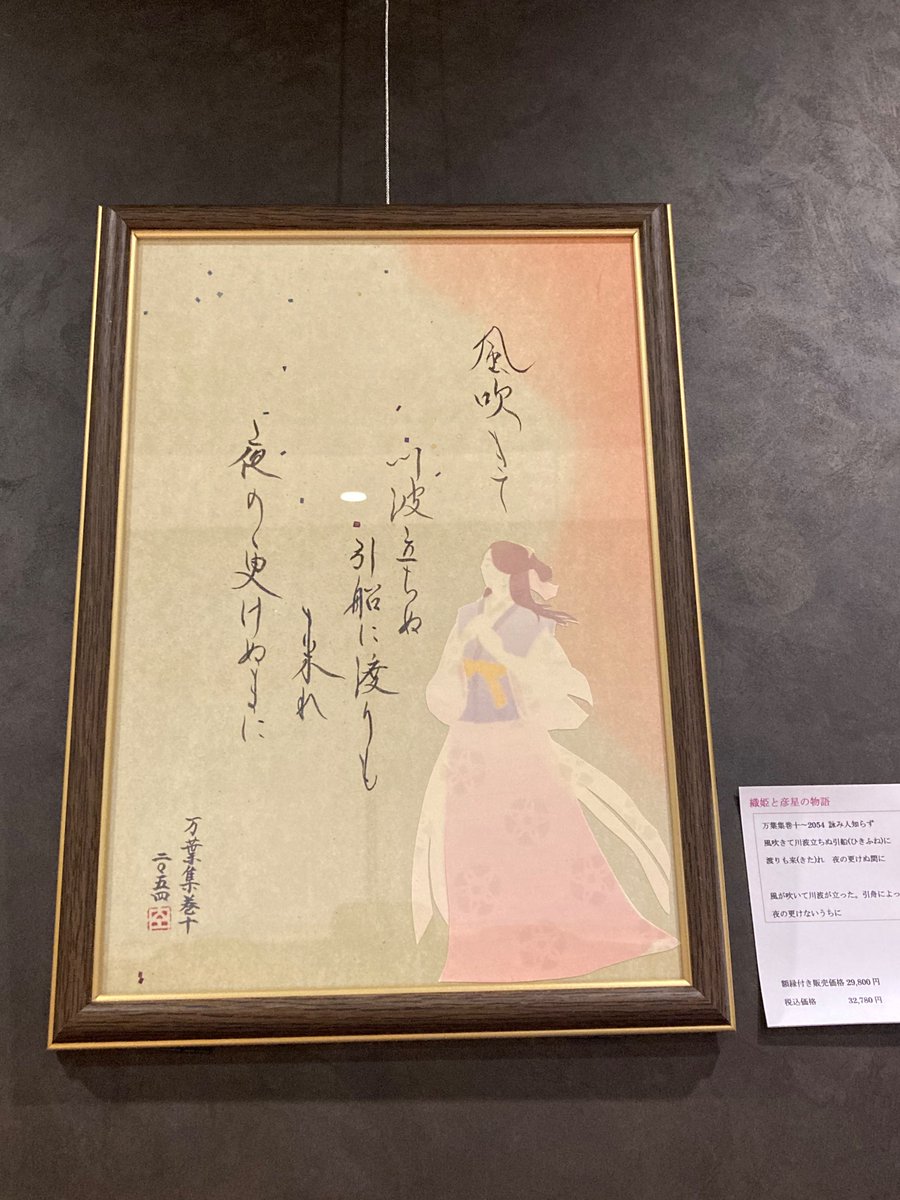 風吹きて
川波立ちぬ
引船に渡りも
来れ
夜の更けぬまに
万葉集巻十
二〇五四
織姫と彦星の物語
万葉集巻十～2054 詠み人知らず
風吹きて川波立ちぬ引船(ひきふね)に
渡りも来(きた)れ 夜の更けぬ間に
風が吹いて川波が立った。引舟によっ
夜の更けないうちに
額縁付き販売価格 29,800 円
税込価格 32,780 円